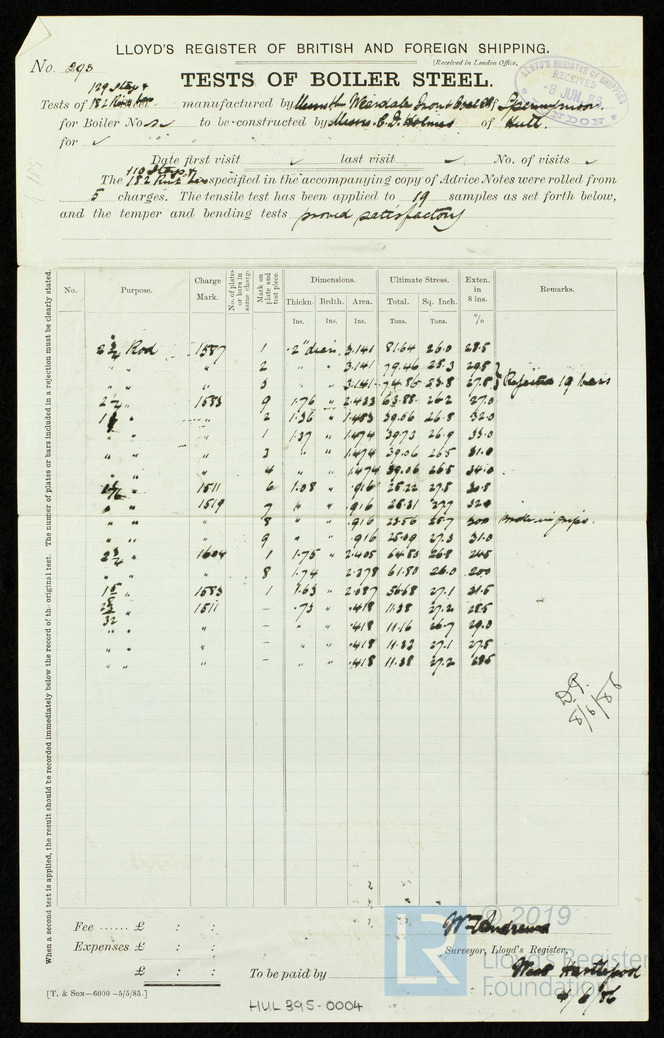 LLOYD'S REGISTER OF BRITISH AND FOREIGN SHIPPING.
No. 293
(Received in London Office,
TESTS OF BOILER STEEL.
LLOYD'S REGISTER OF SHIPPING RECEIVED 8 JUN LONDON
129 Stays &
Tests of 182 manufactured by Weardale Iron & Coal Co of Spennymoor.
for Boiler Nos to be constructed by Messrs. C. D. Holmes of Hull.
for
Date first visit last visit No. of visits
110 Stays &
The 182 specified in the accompanying copy of Advice Notes were rolled from
5 charges. The tensile test has been applied to 19 samples as set forth below,
and the temper and bending tests proved satisfactory
No. Purpose. Charge Mark. No. of plates or bars in same charge Mark on plate and test piece. Dimensions. Ultimate Stress. Exten. in 8 ins. Remarks.
Thickn. Brdth. Area. Total. Sq. Inch.
Ins. Ins. Ins. Tons. Tons. %
2 3/4 Rod 1587 1 2" diam 3.141 81.64 26.0 28.5
" " " 2 " " 3.141 79.46 25.3 29.5
" " " 3 " " 3.141 74.85 23.8 27.5 Rejected 19 bars
" 1583 9 1.76 " 2.433 63.88 26.2 27.0
" " 2 1.36 " 1.453 39.06 26.8 32.0
" " " 1 1.37 " 1.474 39.73 26.9 33.0
" " " 3 " " 1.474 39.06 26.5 31.0
" " " 4 " " 1.474 39.06 26.5 34.0
" 1511 6 1.08 " .916 25.22 27.5 30.5
" " 1519 7 " " .916 25.31 27.7 32.0
" " " 8 " " .916 23.56 25.7 30.0
" " " 9 " " .916 25.09 27.3 31.0
2 3/4 " 1604 1 1.75 " 2.405 64.50 26.8 24.5
" " " 8 1.74 " 2.378 61.80 26.0 20.0
" 1583 1 1.63 " 2.087 56.68 27.1 31.5
" 1511 — .73 " .418 11.38 27.2 28.5
" — " " .418 11.16 26.7 29.0
" " " — " " .418 11.33 27.1 27.5
" " " — " " .418 11.38 27.2 28.5
8/6/86
When a second test is applied, the result should be recorded immediately below the record of the original test. The number of plates or bars included in a rejection must be clearly stated.
Fee ...... £ : :
Expenses £ : :
£ : :
To be paid by
Wm Andrews
Surveyor, Lloyd's Register,
West Hartlepool
4/6/86
[T. & SON—6000 –5/5/85.]
HUL395-0004
LR © 2019
Lloyd's Register
Foundation